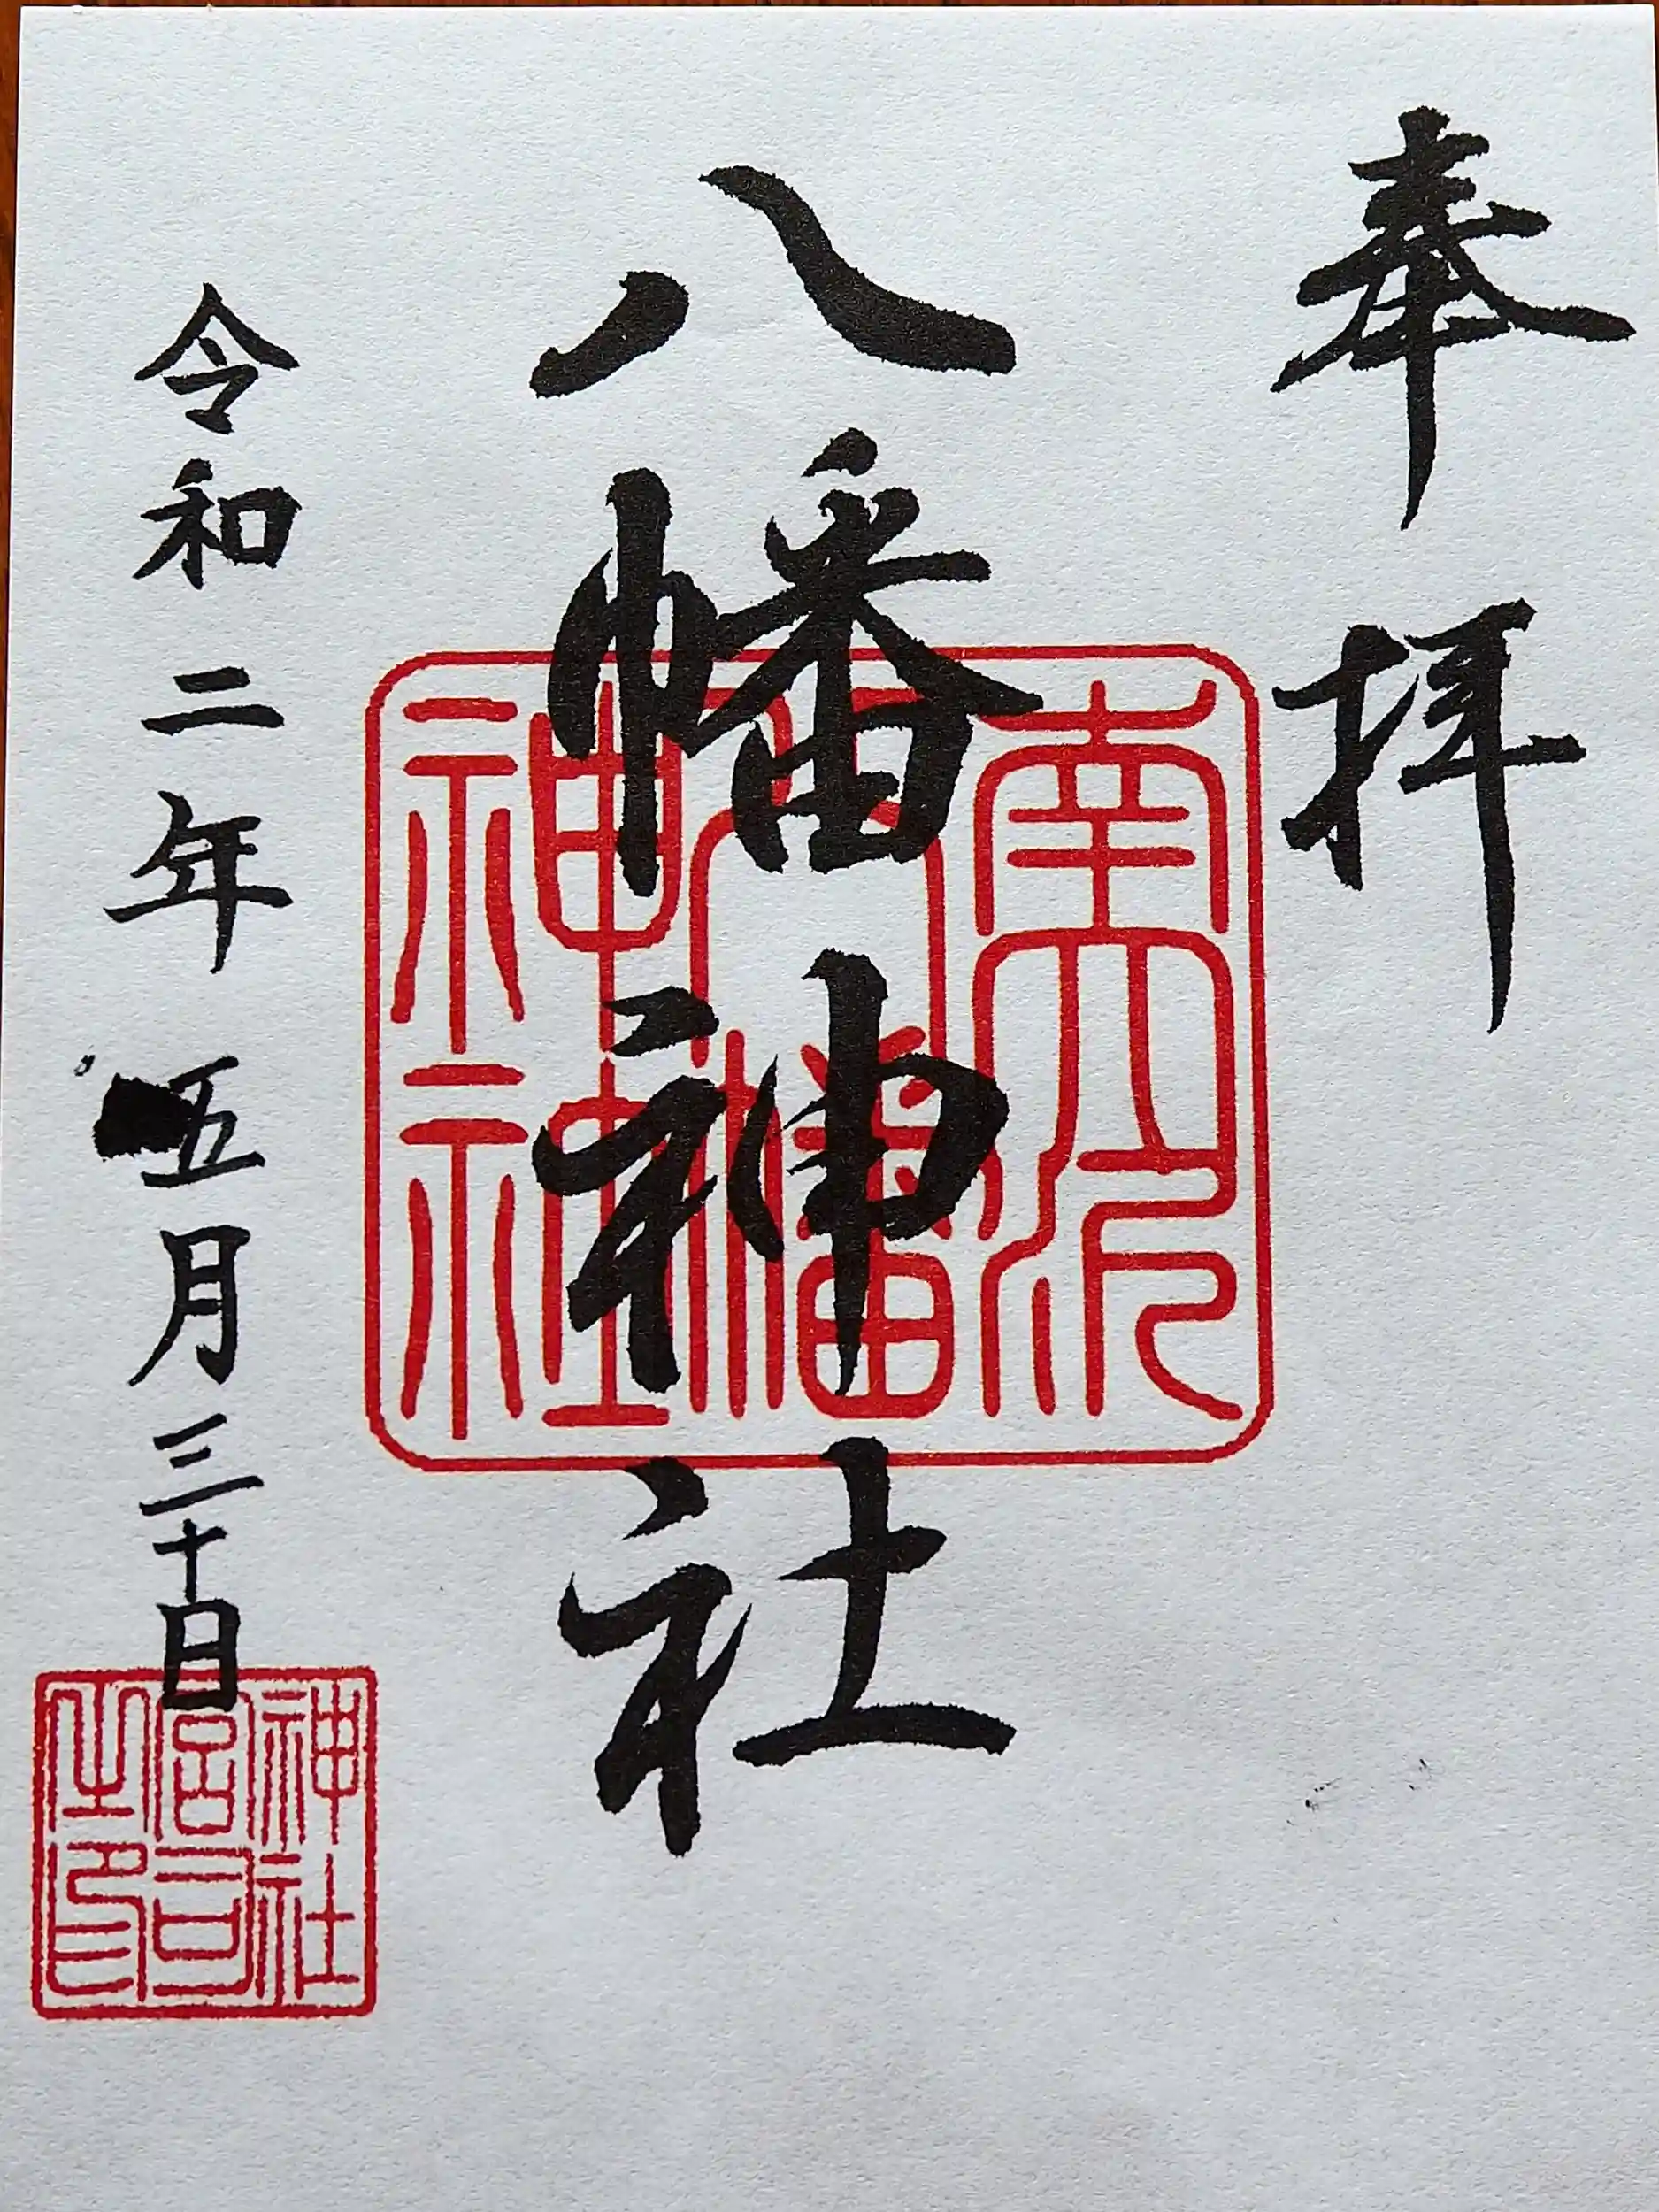 奉拝
八幡神社
南大沢
八幡
神社
令和二年五月三十日
神社
宮司
之印